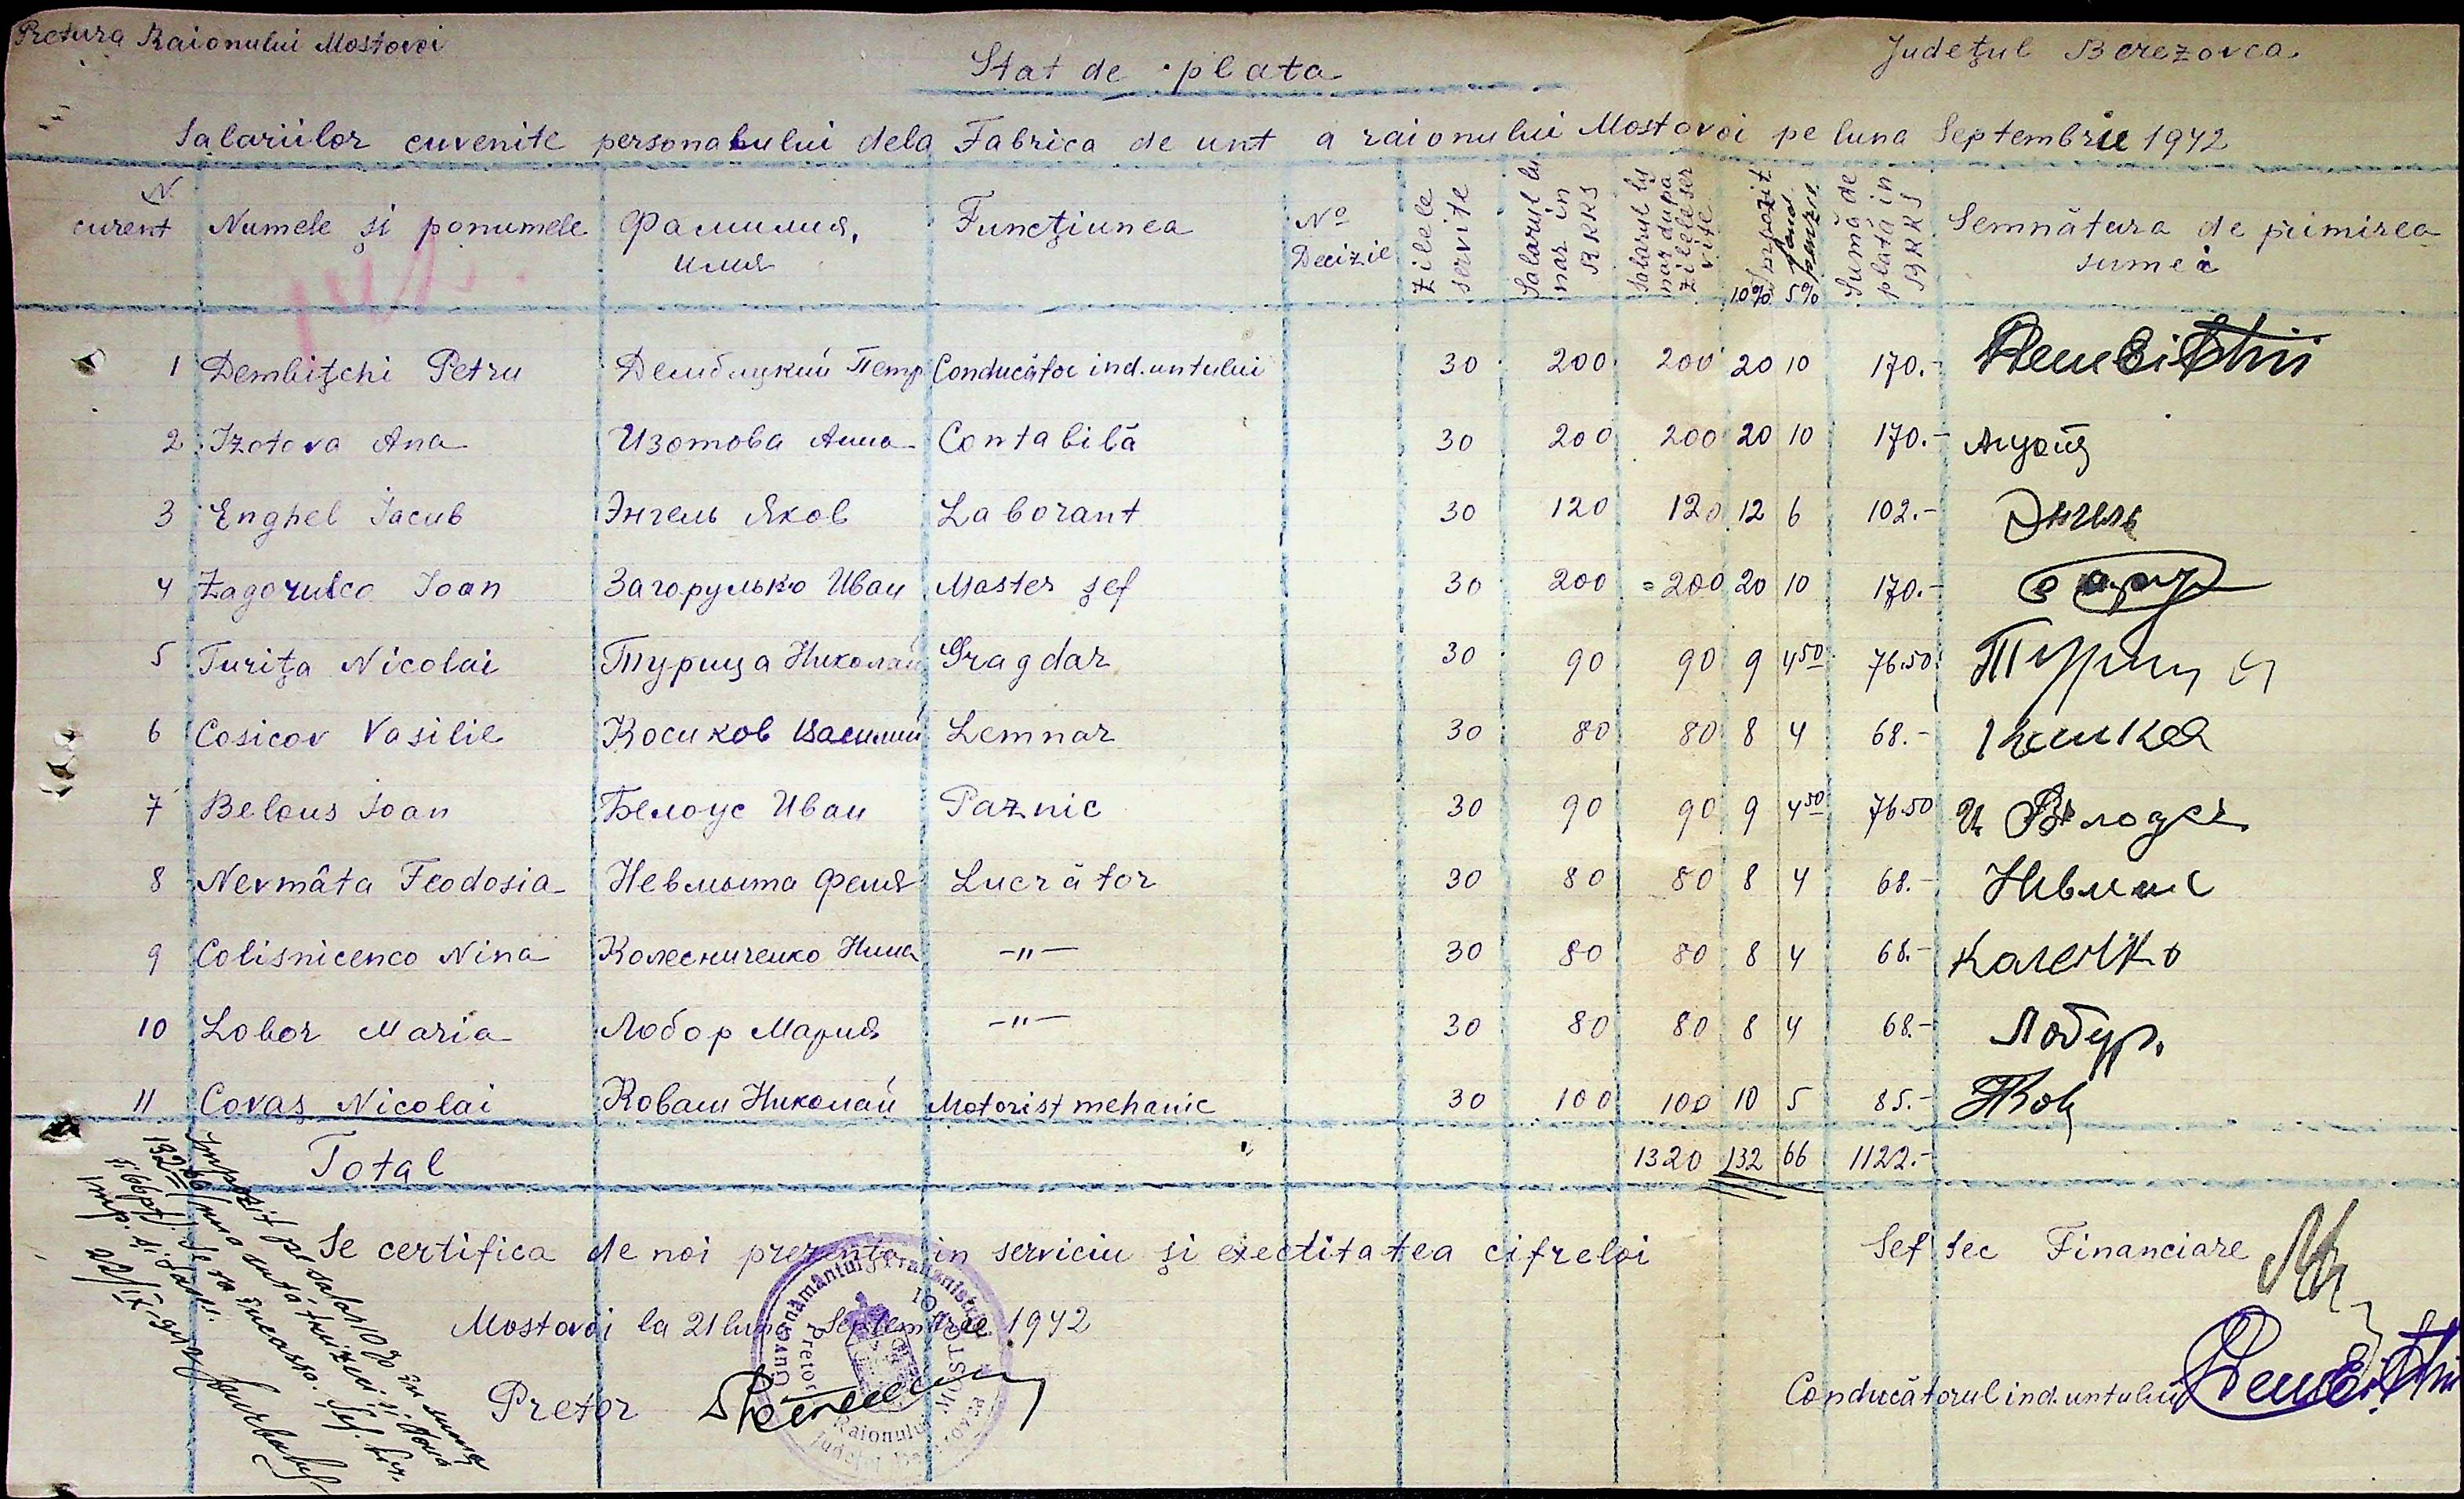 Pretura Raionului Mostovoi
Județul Berezovca
Stat de plata
Salariilor cuvenite personalului dela Fabrica de unt a raionului Mostovoi pe luna Septembrie 1942
N. curent Numele și ponumele Фамилия, имя Funcţiunea No Decizie Zilele servite Salarul lu nar in RKKS Salarul lu nar dupa zilele ser vite 10% impozit 5% fond pensie Sumă de plată in RKKS Semnătura de primirea sumei
1 Dembiţchi Petru Дембицкий Петр Conducător ind. untului 30 200 200 20 10 170.-
2 Izotova Ana Изотова Анна Contabilă 30 200 200 20 10 170.-
3 Enghel Iacub Энгель Яков Laborant 30 120 120 12 6 102.- Энгель
4 Zagorulco Ioan Загорулько Иван Master şef 30 200 = 200 20 10 170.-
5 Turiţa Nicolai Турица Николай Gragdar 30 90 90 9 4 50 76.50
6 Cosicov Vasilie Косиков Василий Lemnar 30 80 80 8 4 68.-
7 Belous Ioan Белоус Иван Paznic 30 90 90 9 4 50 76.50
8 Nevmâta Feodosia Невмыта Феня Lucrător 30 80 80 8 4 68.-
9 Colisnicenco Nina Колесниченко Нина -"- 30 80 80 8 4 68.-
10 Lobor Maria Лобор Мария -"- 30 80 80 8 4 68.-
11 Covaş Nicolai Коваш Николай Motorist mehanic 30 100 100 10 5 85.-
Total 1320 132 66 1122.-
Se certifica de noi prezenţa in serviciu şi exectitatea cifreloi
Sef Sec Financiare
Mostovoi la 21 luna Septembrie 1942
Pretor
Conducătorul ind. untului
Guvernământul Transnistriei
Pretor
Raionului
MOSTOVOI
Judeţul Berezovca
Impozit pe salar 10% in suma
132 una sută treizeci și două
Se va incassa. Șef.
imp. și
22/IX 942